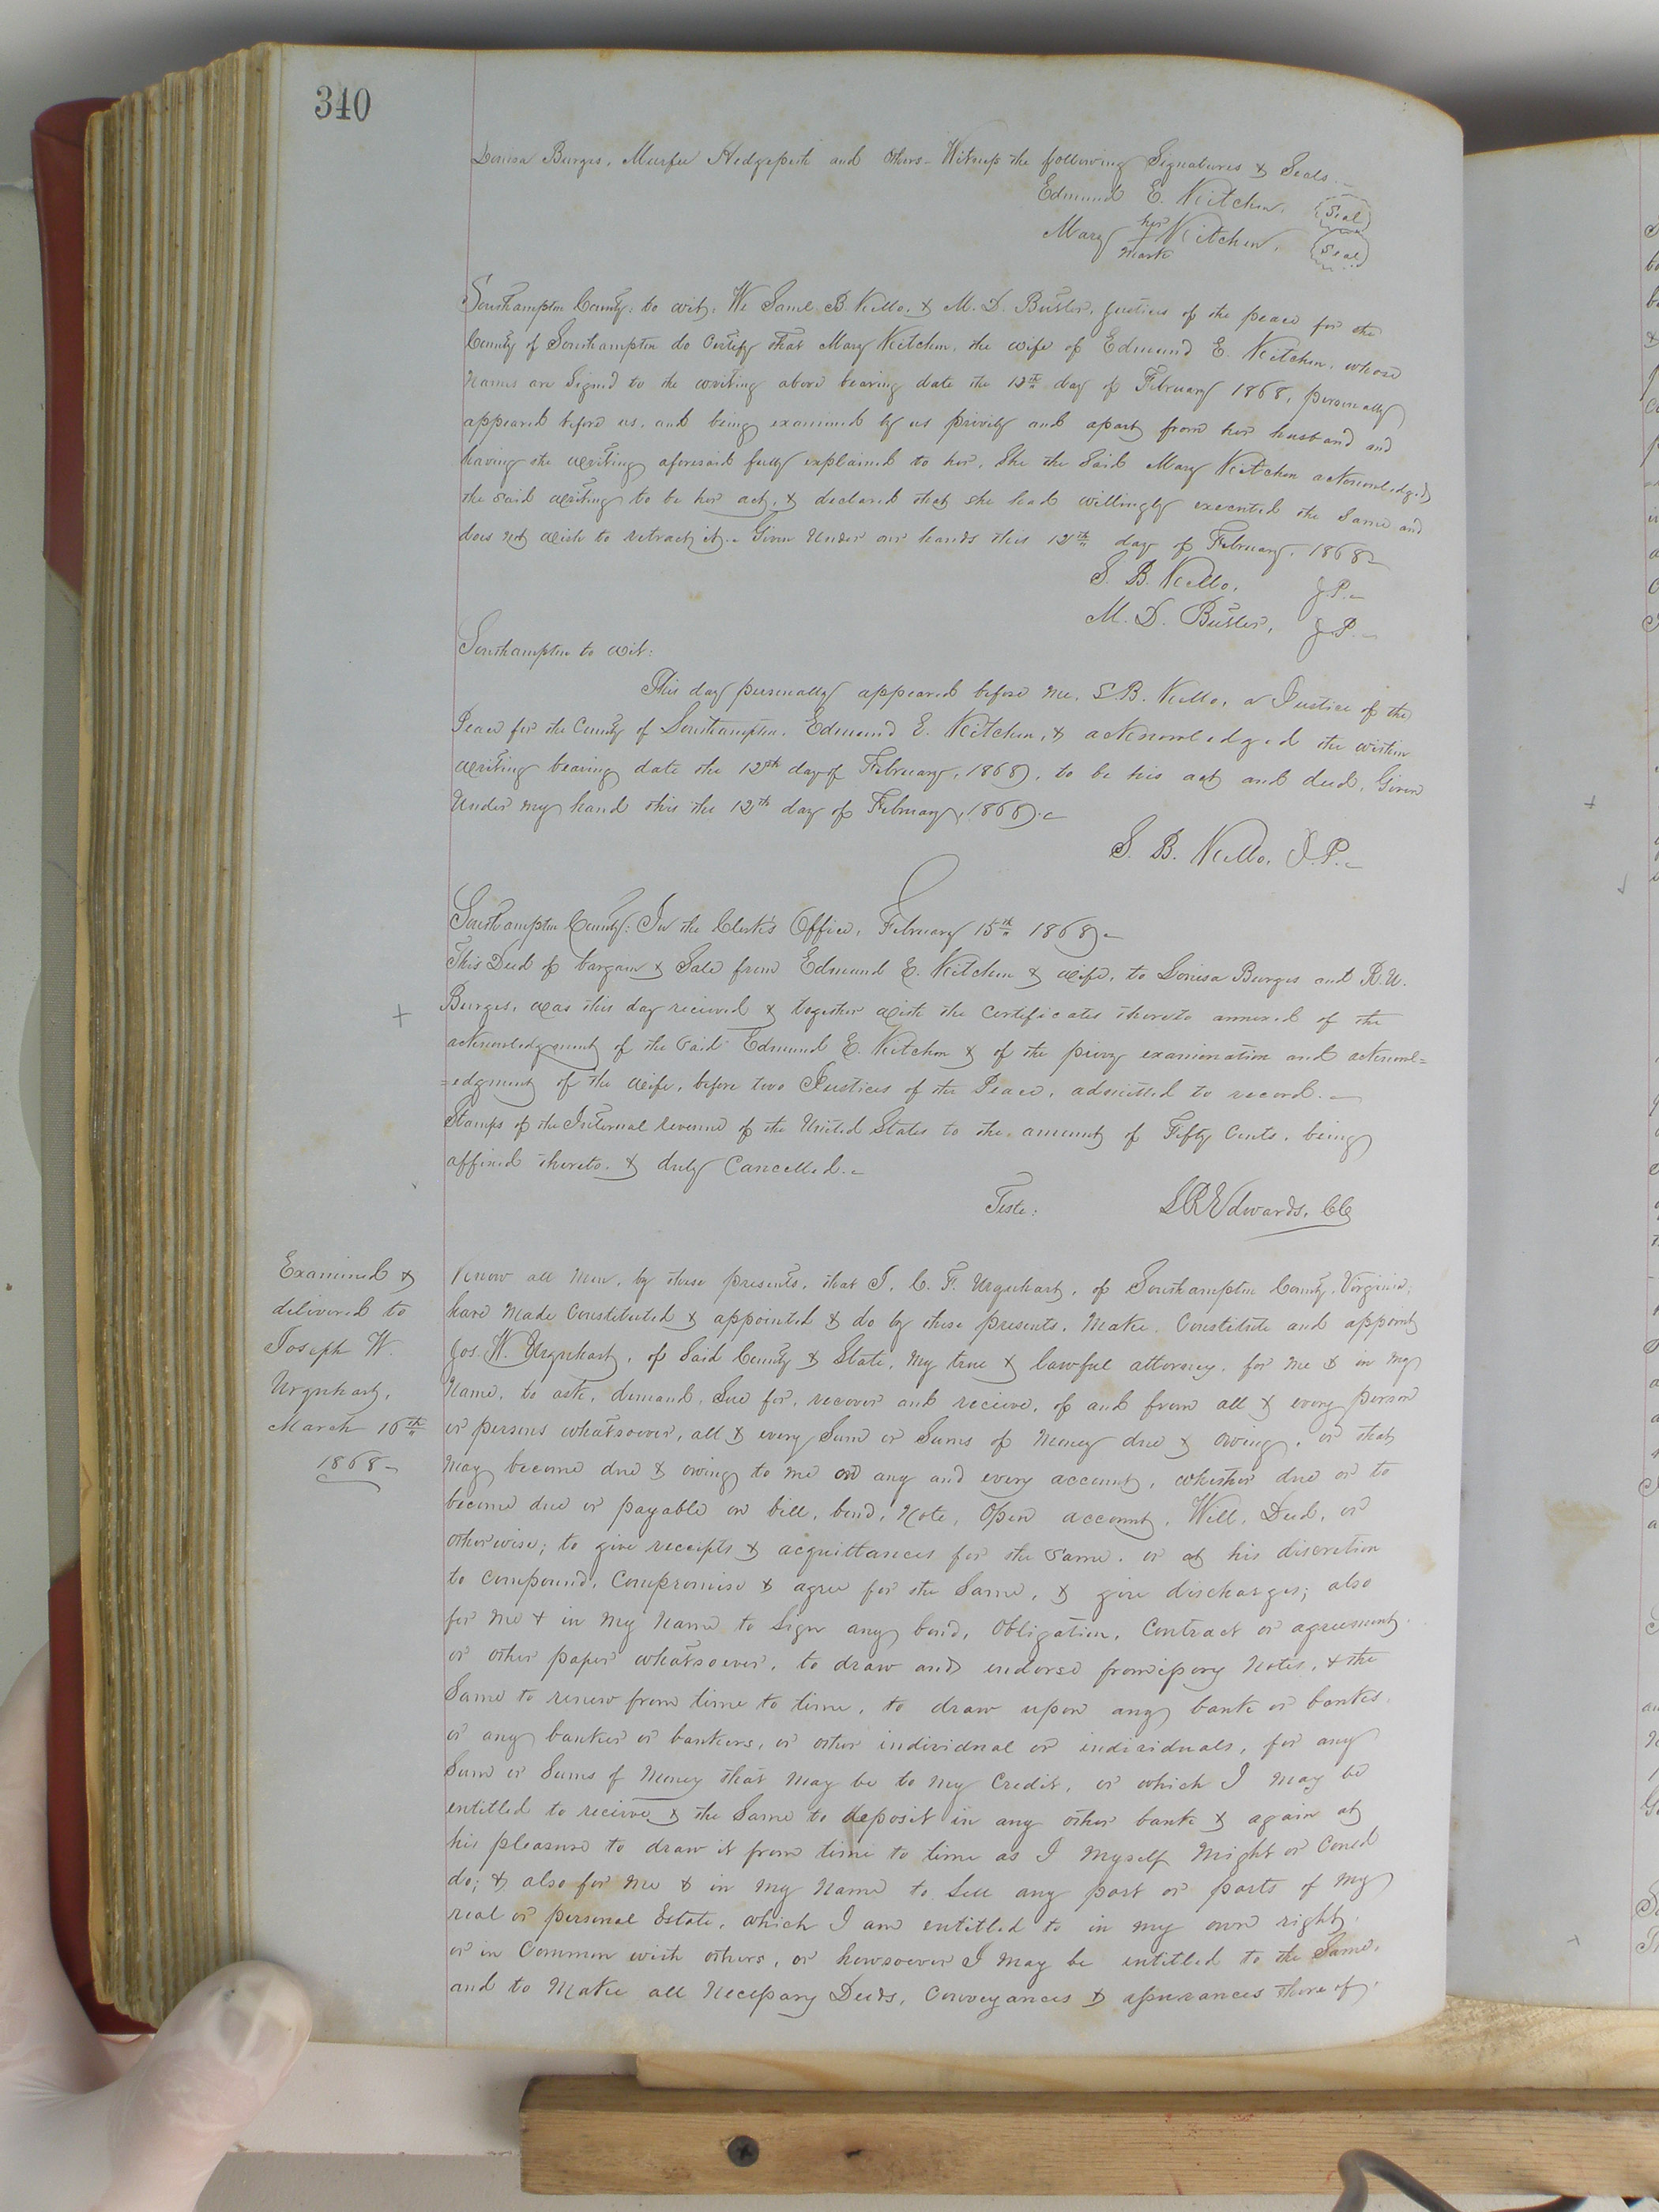 340
Louisa Burges, Murfee Hedgepeth and others. Witness the following Signatures & Seals.
Edmund E. Kitchen. (Seal)
her
Mary + Kitchen. (Seal)
mark
Southampton County: to wit: We Saml. B. Kello, & M. D. Butler, Justices of the peace for the
County of Southampton do Certify that Mary Kitchen, the wife of Edmund E. Kitchen, whose
names are Signed to the writing above bearing date the 12th day of February 1868, personally
appeared before us, and being examined by us privily and apart from her husband and
having the writing aforesaid fully explained to her, She the Said Mary Kitchen acknowledged
the said writing to be her act, & declared that she had willingly executed the Same and
does not wish to retract it. Given Under our hands this 12th day of February, 1868
S. B. Kello, J.P.
M. D. Butler, J.P.
Southampton to wit:
This day personally appeared before me, S. B. Kello, a Justice of the
Peace for the County of Southampton, Edmund E. Kitchen, & acknowledged the within
writing bearing date the 12th day of February, 1868, to be his act and deed, Given
Under my hand this the 12th day of February, 1868.
S. B. Kello, J.P.
Southampton County: In the Clerk's Office, February 15th 1868
This Deed of bargain & Sale from Edmund E. Kitchen & wife, to Louisa Burges and R. U.
Burges, was this day recieved & together with the Certificates thereto annexed of the
acknowledgment of the Said Edmund E. Kitchen & of the privy examination and acknowl=
=edgment of the wife, before two Justices of the Peace, admitted to record.
Stamps of the Internal revenue of the United States to the amount of Fifty Cents, being
affixed thereto, & duly Cancelled.
Teste: L R Edwards, CC
Examined &
delivered to
Joseph W.
Urquhart,
March 16th
1868
Know all Men, by these presents, that I, C. F. Urquhart, of Southampton County, Virginia,
have Made Constituted & appointed & do by these presents, Make, Constitute and appoint
Jos. W. Urquhart, of Said County & State, My true & lawful attorney, for me & in my
Name, to ask, demand, Sue for, recover and recieve, of and from all & every person
or persons whatsoever, all & every Sum or Sums of Money due & owing, or that
May become due & owing to me on any and every account, whether due or to
become due or payable on bill, bond, Note, Open account, Will, Deed, or
otherwise; to give receipts & acquittances for the Same, or at his discretion
to Compound, Compromise & agree for the Same, & give discharges; also
for me & in My Name to Sign any bond, Obligation, Contract or agreement
or other paper whatsoever, to draw and endorse promissory Notes, & the
Same to renew from time to time, to draw upon any bank or banks,
or any banker or bankers, or other individual or individuals, for any
Sum or Sums of Money that May be to My Credit, or which I May be
entitled to recieve & the Same to deposit in any other bank & again at
his pleasure to draw it from time to time as I Myself Might or Could
do; & also for Me & in My Name to Sell any part or parts of My
real or personal Estate, which I am entitled to in my own right,
or in Common with others, or howsoever I May be entitled to the Same,
and to Make all Necessary Deeds, Conveyances & assurances thereof,